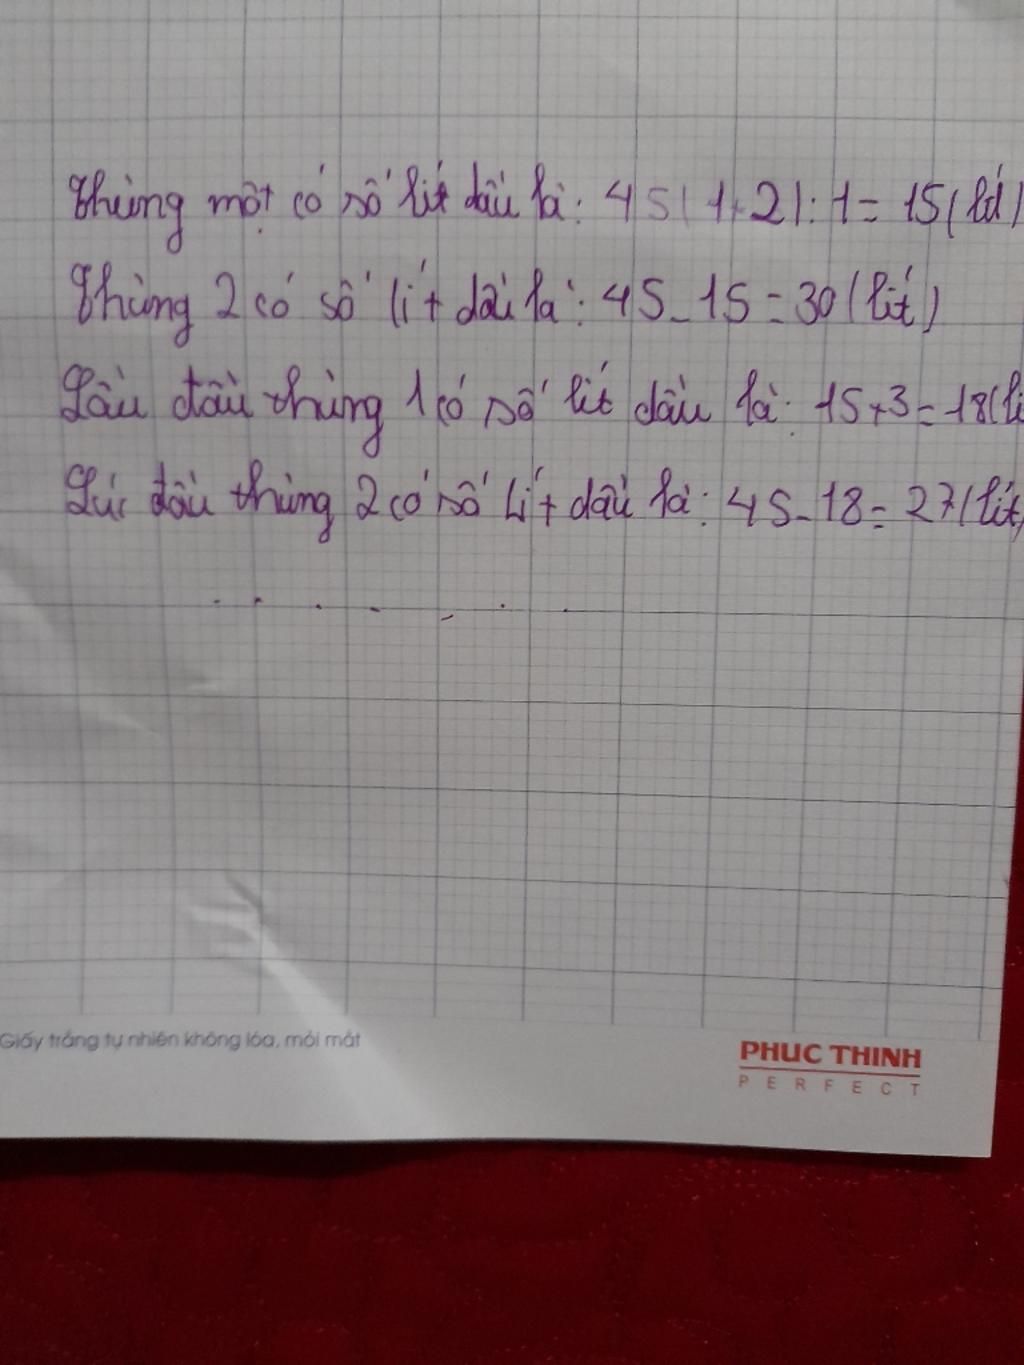 Thùng một có số lít dầu là: 45(1+2):1=15(lít)
Thùng 2 có số lít dầu là: 45-15=30(lít)
Lầu đầu thùng 1 có số lít dầu là: 15+3=18(lí
Lúc đầu thùng 2 có số lít dầu là: 45-18=27(lít)
Giấy trắng tự nhiên không lóa, mỏi mắt
PHUC THINH
PERFECT